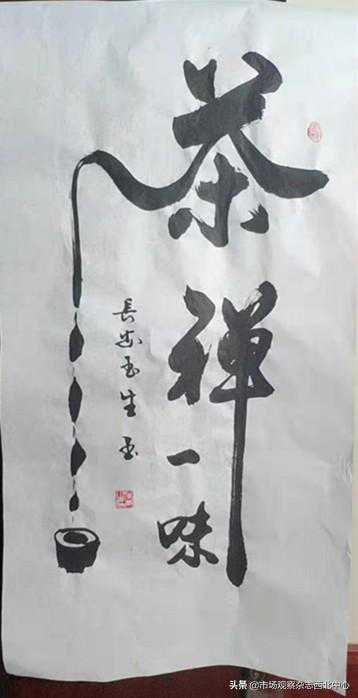 茶禅一味
長安玉生玉
头条 @市场观察杂志西北中心